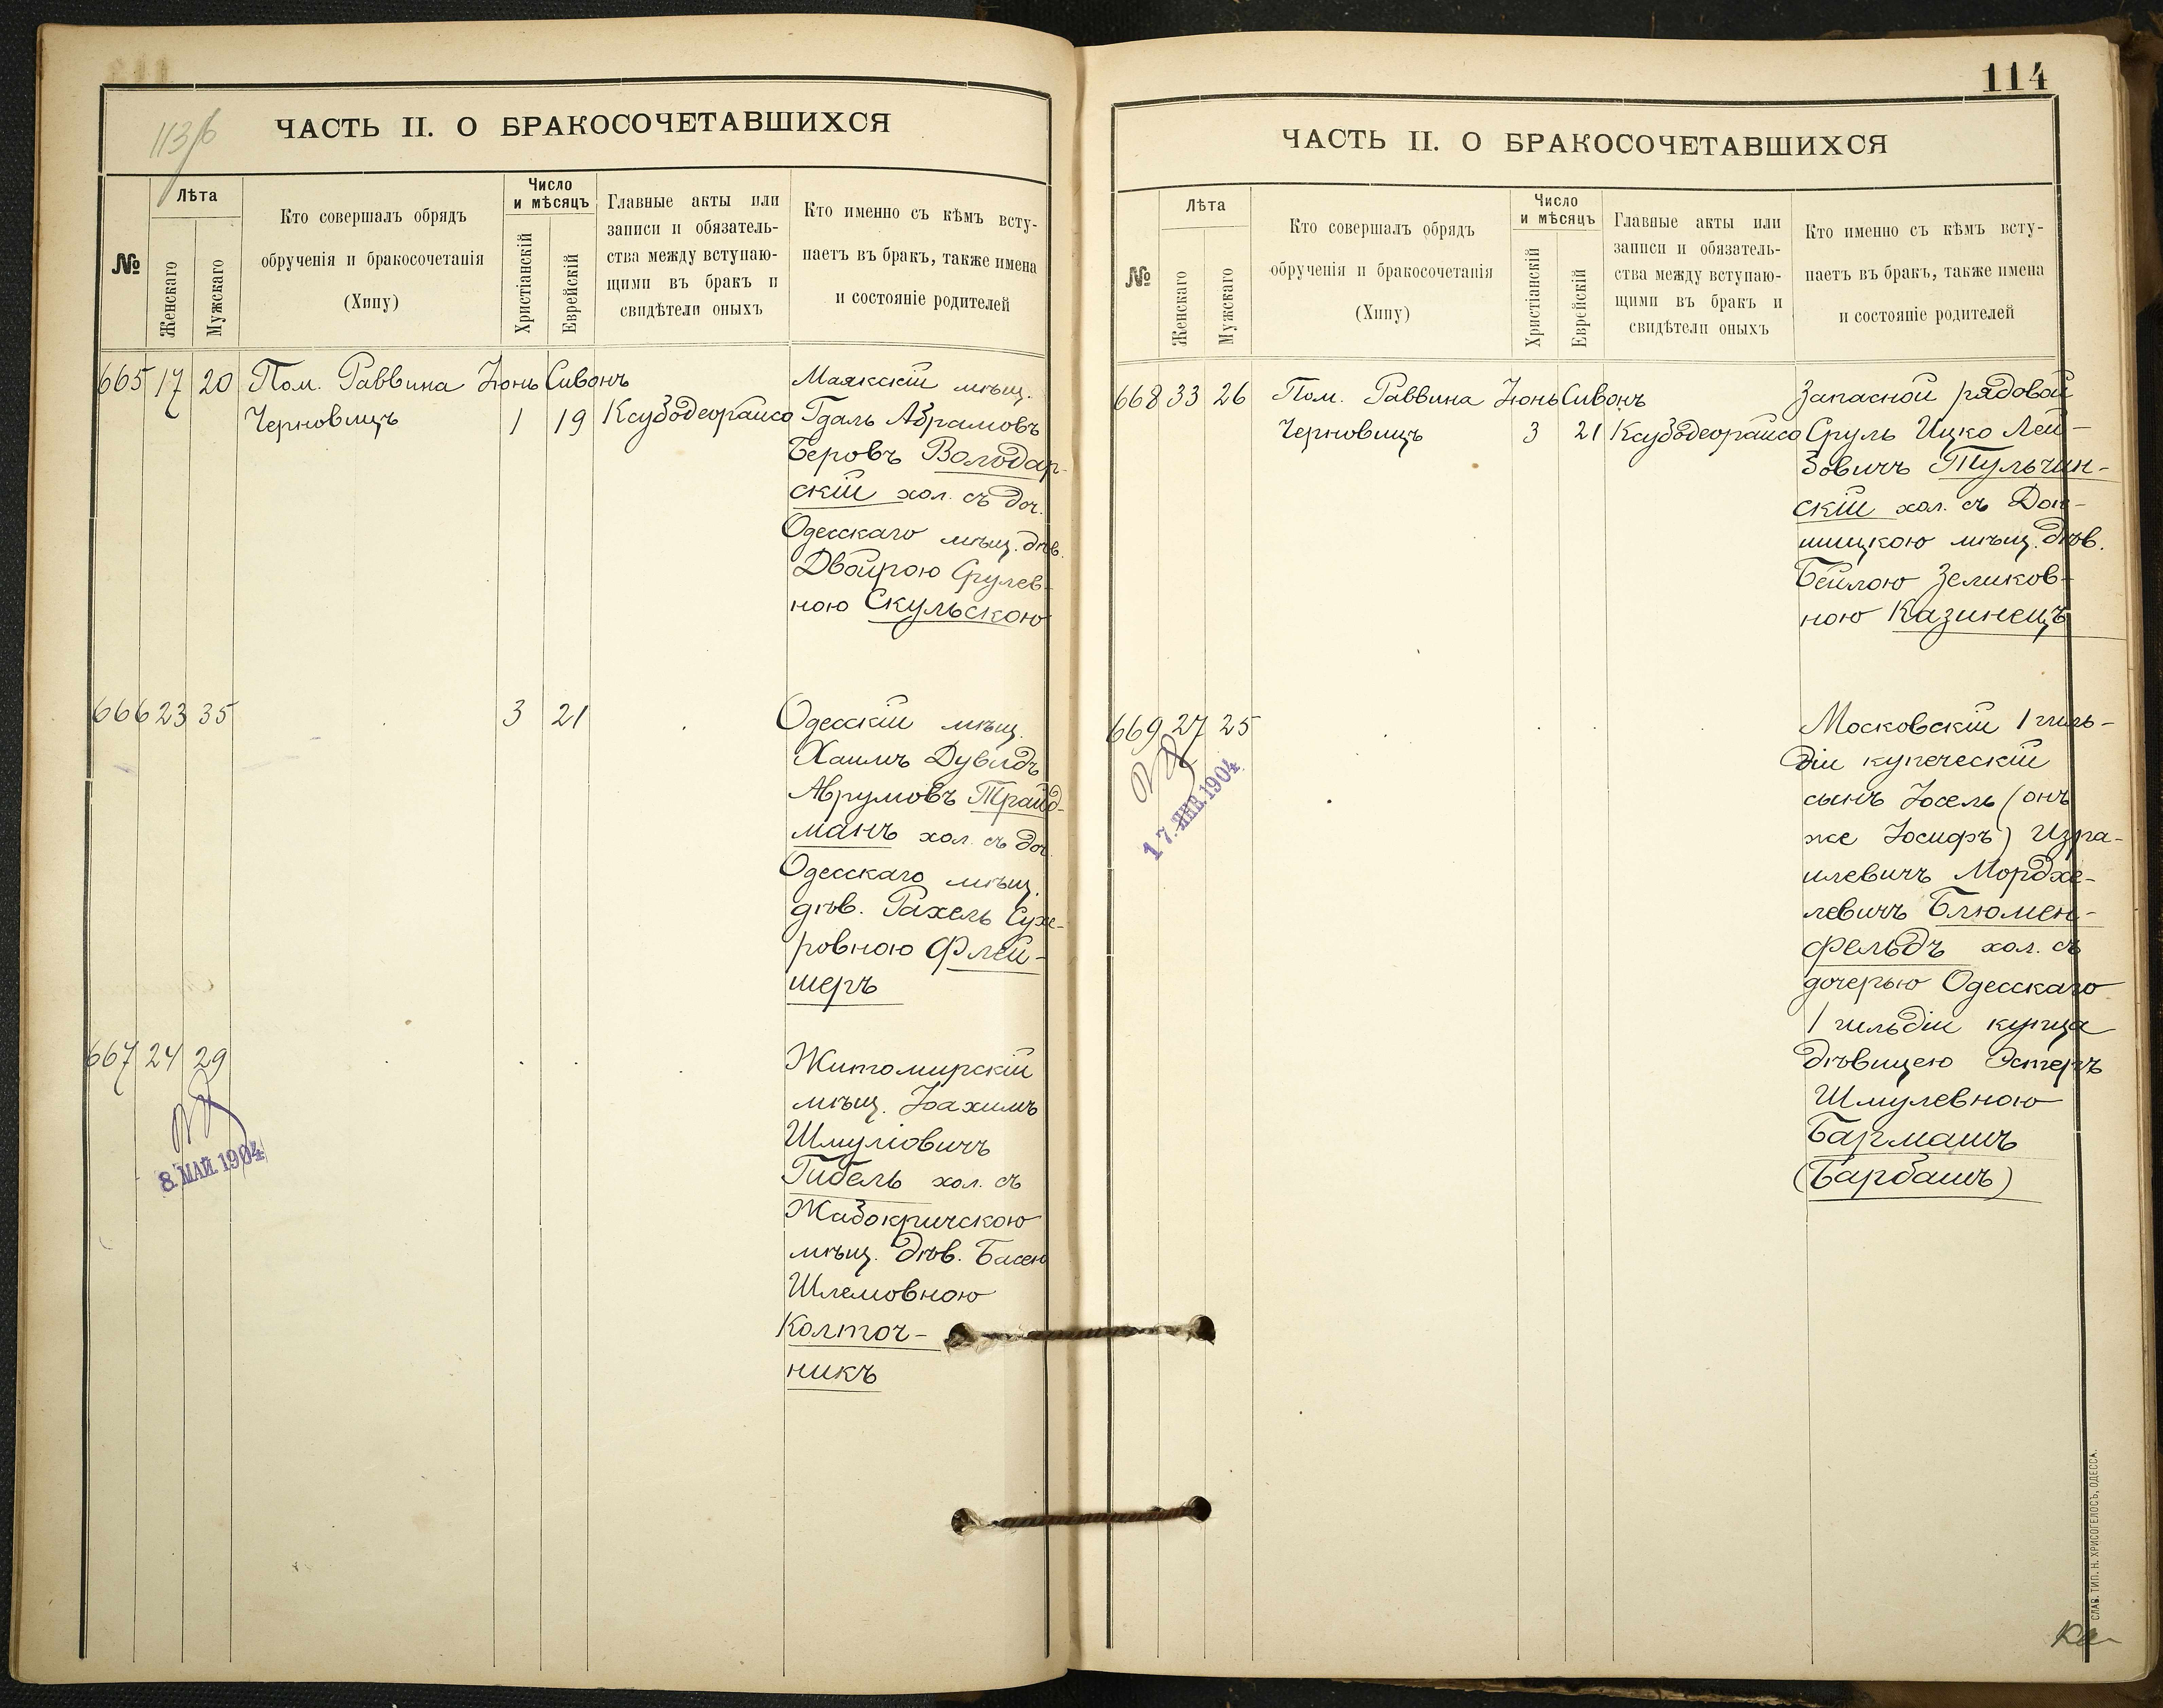 113/б
ЧАСТЬ II. О БРАКОСОЧЕТАВШИХСЯ
№
Лѣта
Женскаго
Мужскаго
Кто совершалъ обрядъ
обрученія и бракосочетанія
(Хипу)
Число
и мѣсяцъ
Христіанскій
Еврейскій
Главные акты или
записи и обязатель-
ства между вступаю-
щими въ бракъ и
свидѣтели оныхъ
Кто именно съ кѣмъ всту-
паетъ въ бракъ, также имена
и состояніе родителей
665 17 20 Пом. Раввина Іюнь Сивонъ
Черновицъ 1 19 Ксубодеорайсо
Маякскій мѣщ.
Гдаль Абрамовъ
Беровъ Володар-
скій хол. съ доч.
Одесскаго мѣщ. дѣв.
Двойрою Срулев-
ною Скульскою
666 23 35 3 21
Одесскій мѣщ.
Хаимъ Дувидъ
Аврумовъ Трайд-
манъ хол. съ доч.
Одесскаго мѣщ.
дѣв. Рахель Сухе-
ровною Флей-
шеръ
667 24 29
8. МАЙ. 1904
Житомирскій
мѣщ. Іоахимъ
Шмуліовичъ
Гибель хол. съ
Жабокричскою
мѣщ. дѣв. Басею
Шлемовною
Колточ-
никъ
114
ЧАСТЬ II. О БРАКОСОЧЕТАВШИХСЯ
№
Лѣта
Женскаго
Мужскаго
Кто совершалъ обрядъ
обрученія и бракосочетанія
(Хипу)
Число
и мѣсяцъ
Христіанскій
Еврейскій
Главные акты или
записи и обязатель-
ства между вступаю-
щими въ бракъ и
свидѣтели оныхъ
Кто именно съ кѣмъ всту-
паетъ въ бракъ, также имена
и состояніе родителей
668 33 26 Пом. Раввина Іюнь Сивонъ
Черновицъ 3 21 Ксубодеорайсо
Запасной рядовой
Сруль Ицко Лей-
зовичъ Тульчин-
скій хол. съ Док-
шицкою мѣщ. дѣв.
Бейлою Зеликов-
ною Казинецъ
669 27 25
17. ЯНВ. 1904
Московскій 1 гиль-
діи купеческій
сынъ Іосель (онъ
же Іосифъ) Изра-
илевичъ Мордхе-
левичъ Блюмен-
фельдъ хол. съ
дочерью Одесскаго
1 гильдіи купца
дѣвицею Эстеръ
Шмулевною
Бармашъ
(Барбашъ)
СЛАВ. ТИП. Н. ХРИСОГЕЛОСЪ, ОДЕССА.